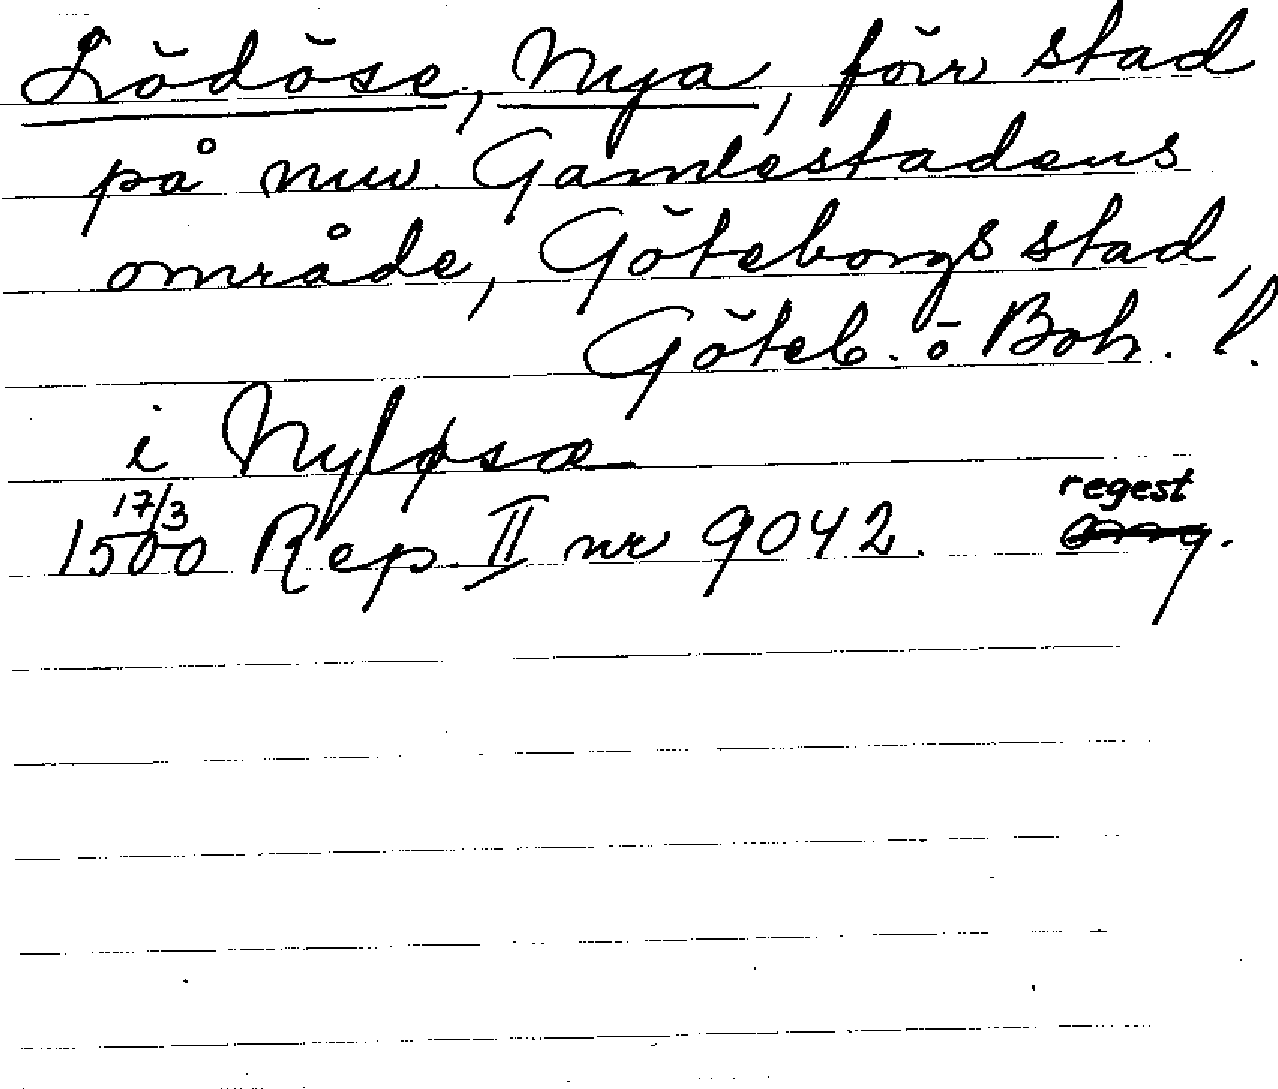 Lödöse, Nya, förr stad
på nuv. Gamlestadens
område, Göteborgs stad,
Göteb. o Boh. l.
i Nyløsæ
17/3 regest
1500 Rep. II nr 9042.